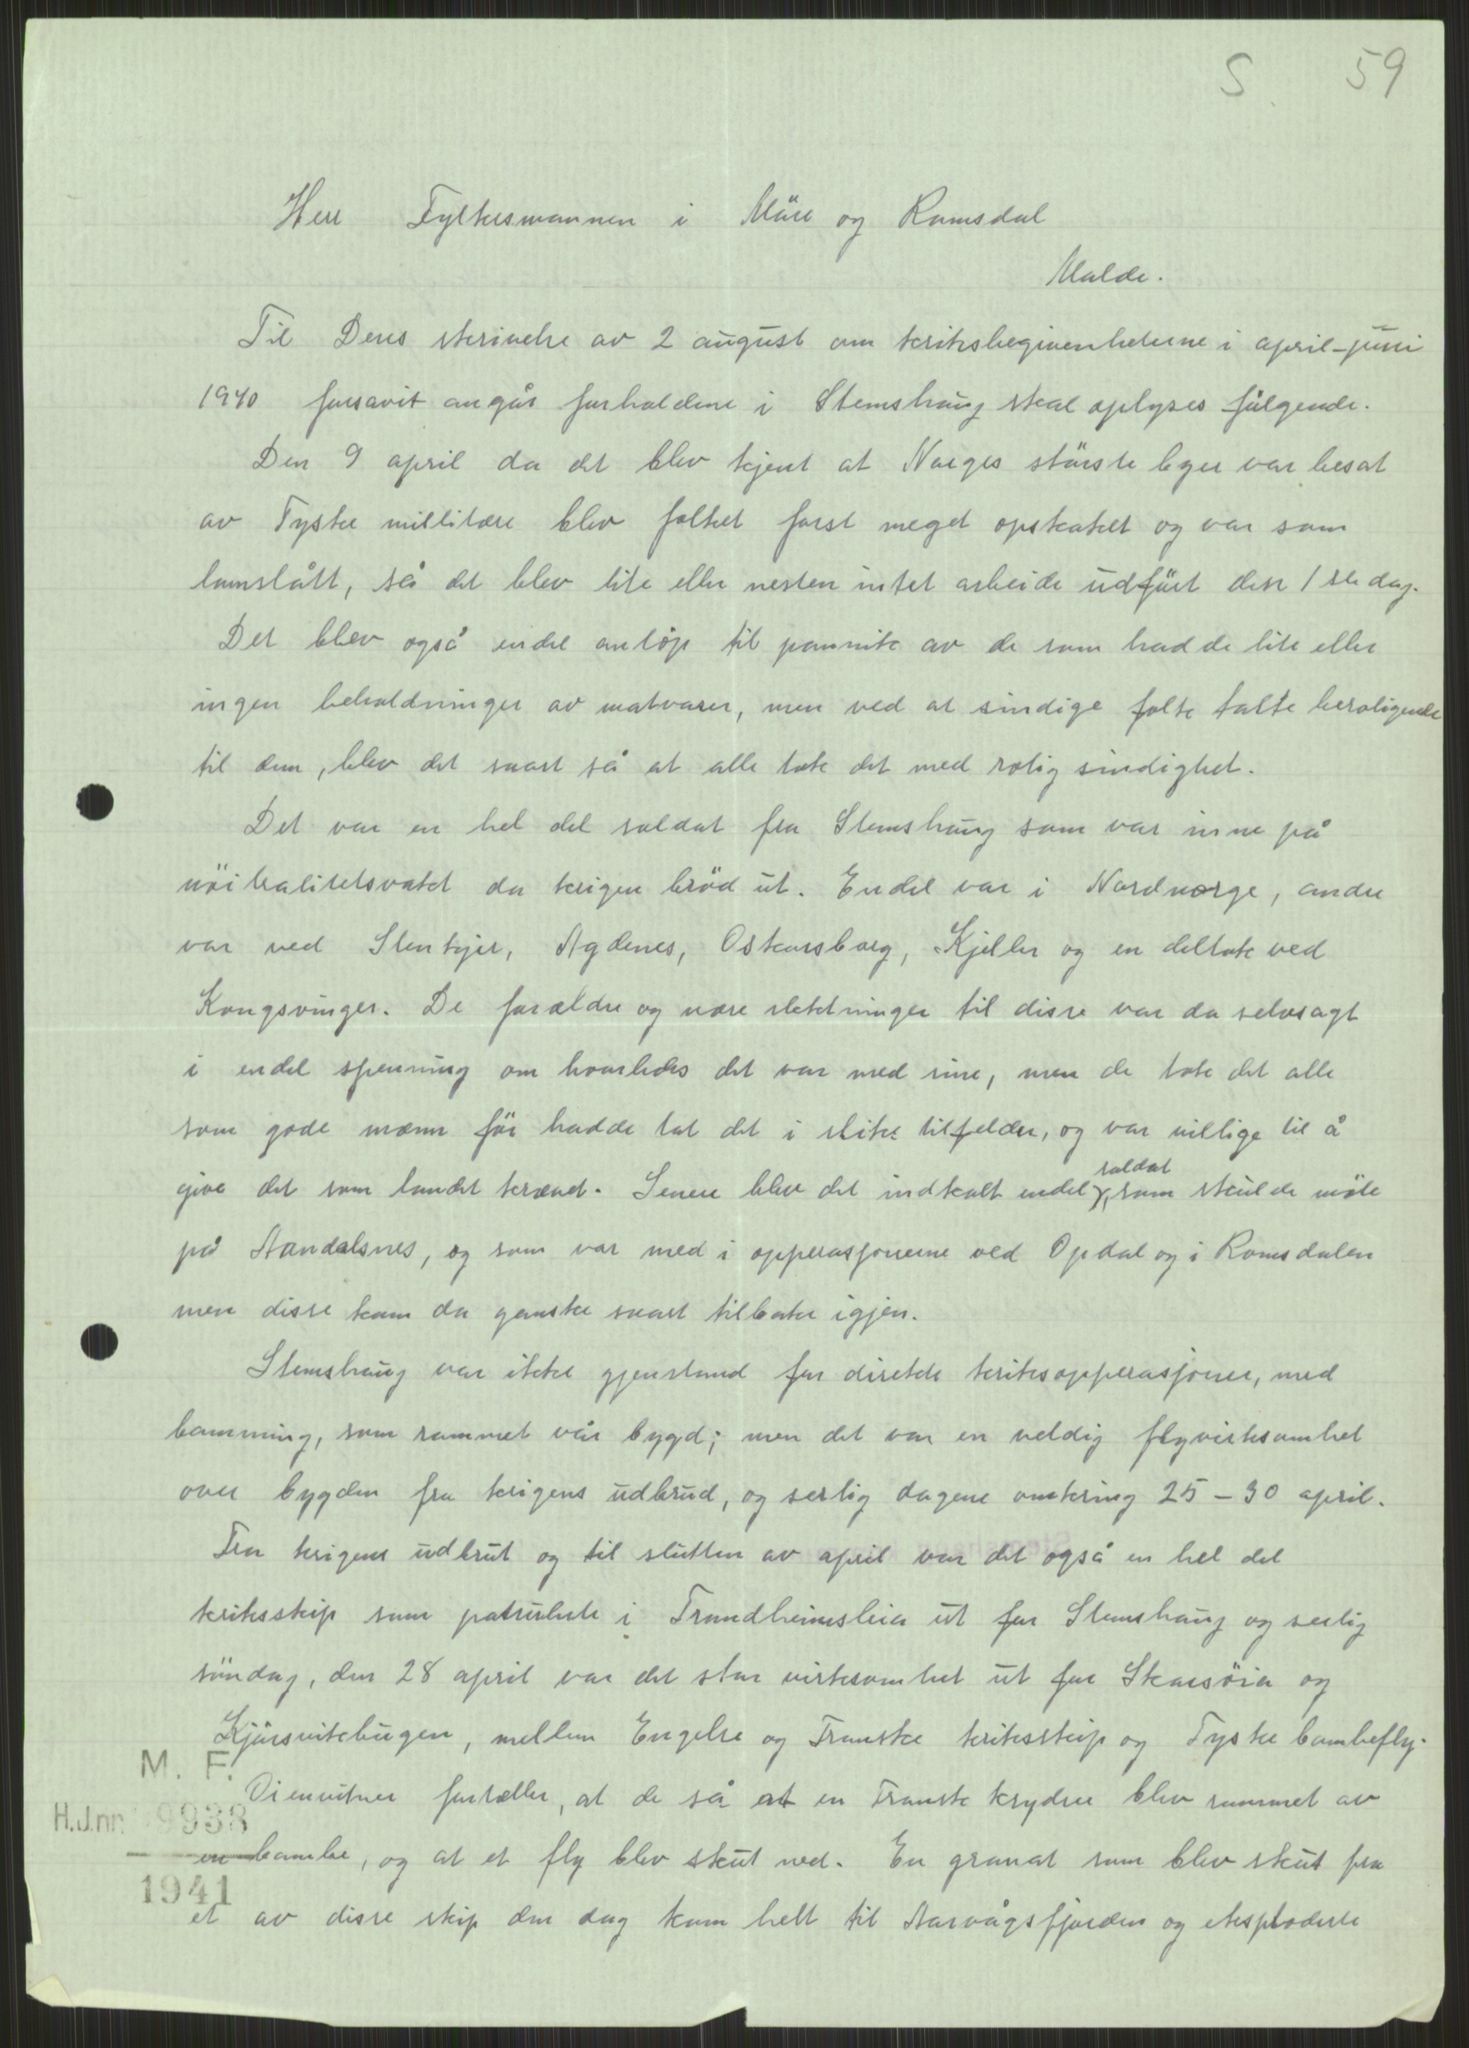 S. 59
Herr Fylkesmannen i Möre og Romsdal
Molde.
Til Deres skrivelse av 2 august om kriksbegivenheterne i april-juni
1940 forsavit angår forholdene i Stemshaug skal oplyses følgende.
Den 9 april da det blev kjent at Norges störste byer var besat
av Tyske millitære blev folket först meget opskaket og var som
lamslått, så det blev lite eller nesten intet arbeide udført den 1 ste dag.
Det blev også endel anløp til pannik av de som hadde lite eller
ingen beholdninger av matvarer, men ved at sindige folk talte beroligende
til dem, blev det snart så at alle tok det med rolig sindighet.
Det var en hel del soldat fra Stemshaug som var inne på
nöitralitetsvakt da krigen bröd ut. Endel var i Nordnorge, andre
var ved Stenkjer, Agdenes, Oskarsborg, Kjeller og en deltok ved
Kongsvinger. De forældre og nære slektninger til disse var da selvsagt
i endel spenning om hvorledes det var med sine, men de tok det alle
som gode mænn før hadde tat det i slike tilfelder, og var villige til å
give det som landet krævet. Senere blev det indkalt endel soldat, som skulde møte
på Aandalsnes, og som var med i opperasjonerne ved Opdal og i Romsdalen
men disse kom da ganske snart tilbake igjen.
Stemshaug var ikke gjenstand for direkte kriksopperasjoner, med
bomming, som rammet vår bygd; men det var en veldig flyvirksomhet
over bygden fra krigens udbrud, og serlig dagene omkring 25-30 april.
Fra krigens udbrut og til slutten av april var det også en hel del
kriksskip som patrulerte i Trondheimsleia ut for Stemshaug og serlig
söndag, den 28 april var det stor virksomhet ut for Skarsöia og
Kjörsvikbugen, mellem Engelse og Franske kriksskip og Tyske bombefly.
M. F.
Öienvitner fortæller, at de så at en Fransk krydser blev rammet av
H.J.nr. 9938
en bombe, og at et fly blev skut ned. En granat som blev skut fra
1941
et av disse skip den dag kom helt til Aarvågsfjorden og eksploderte